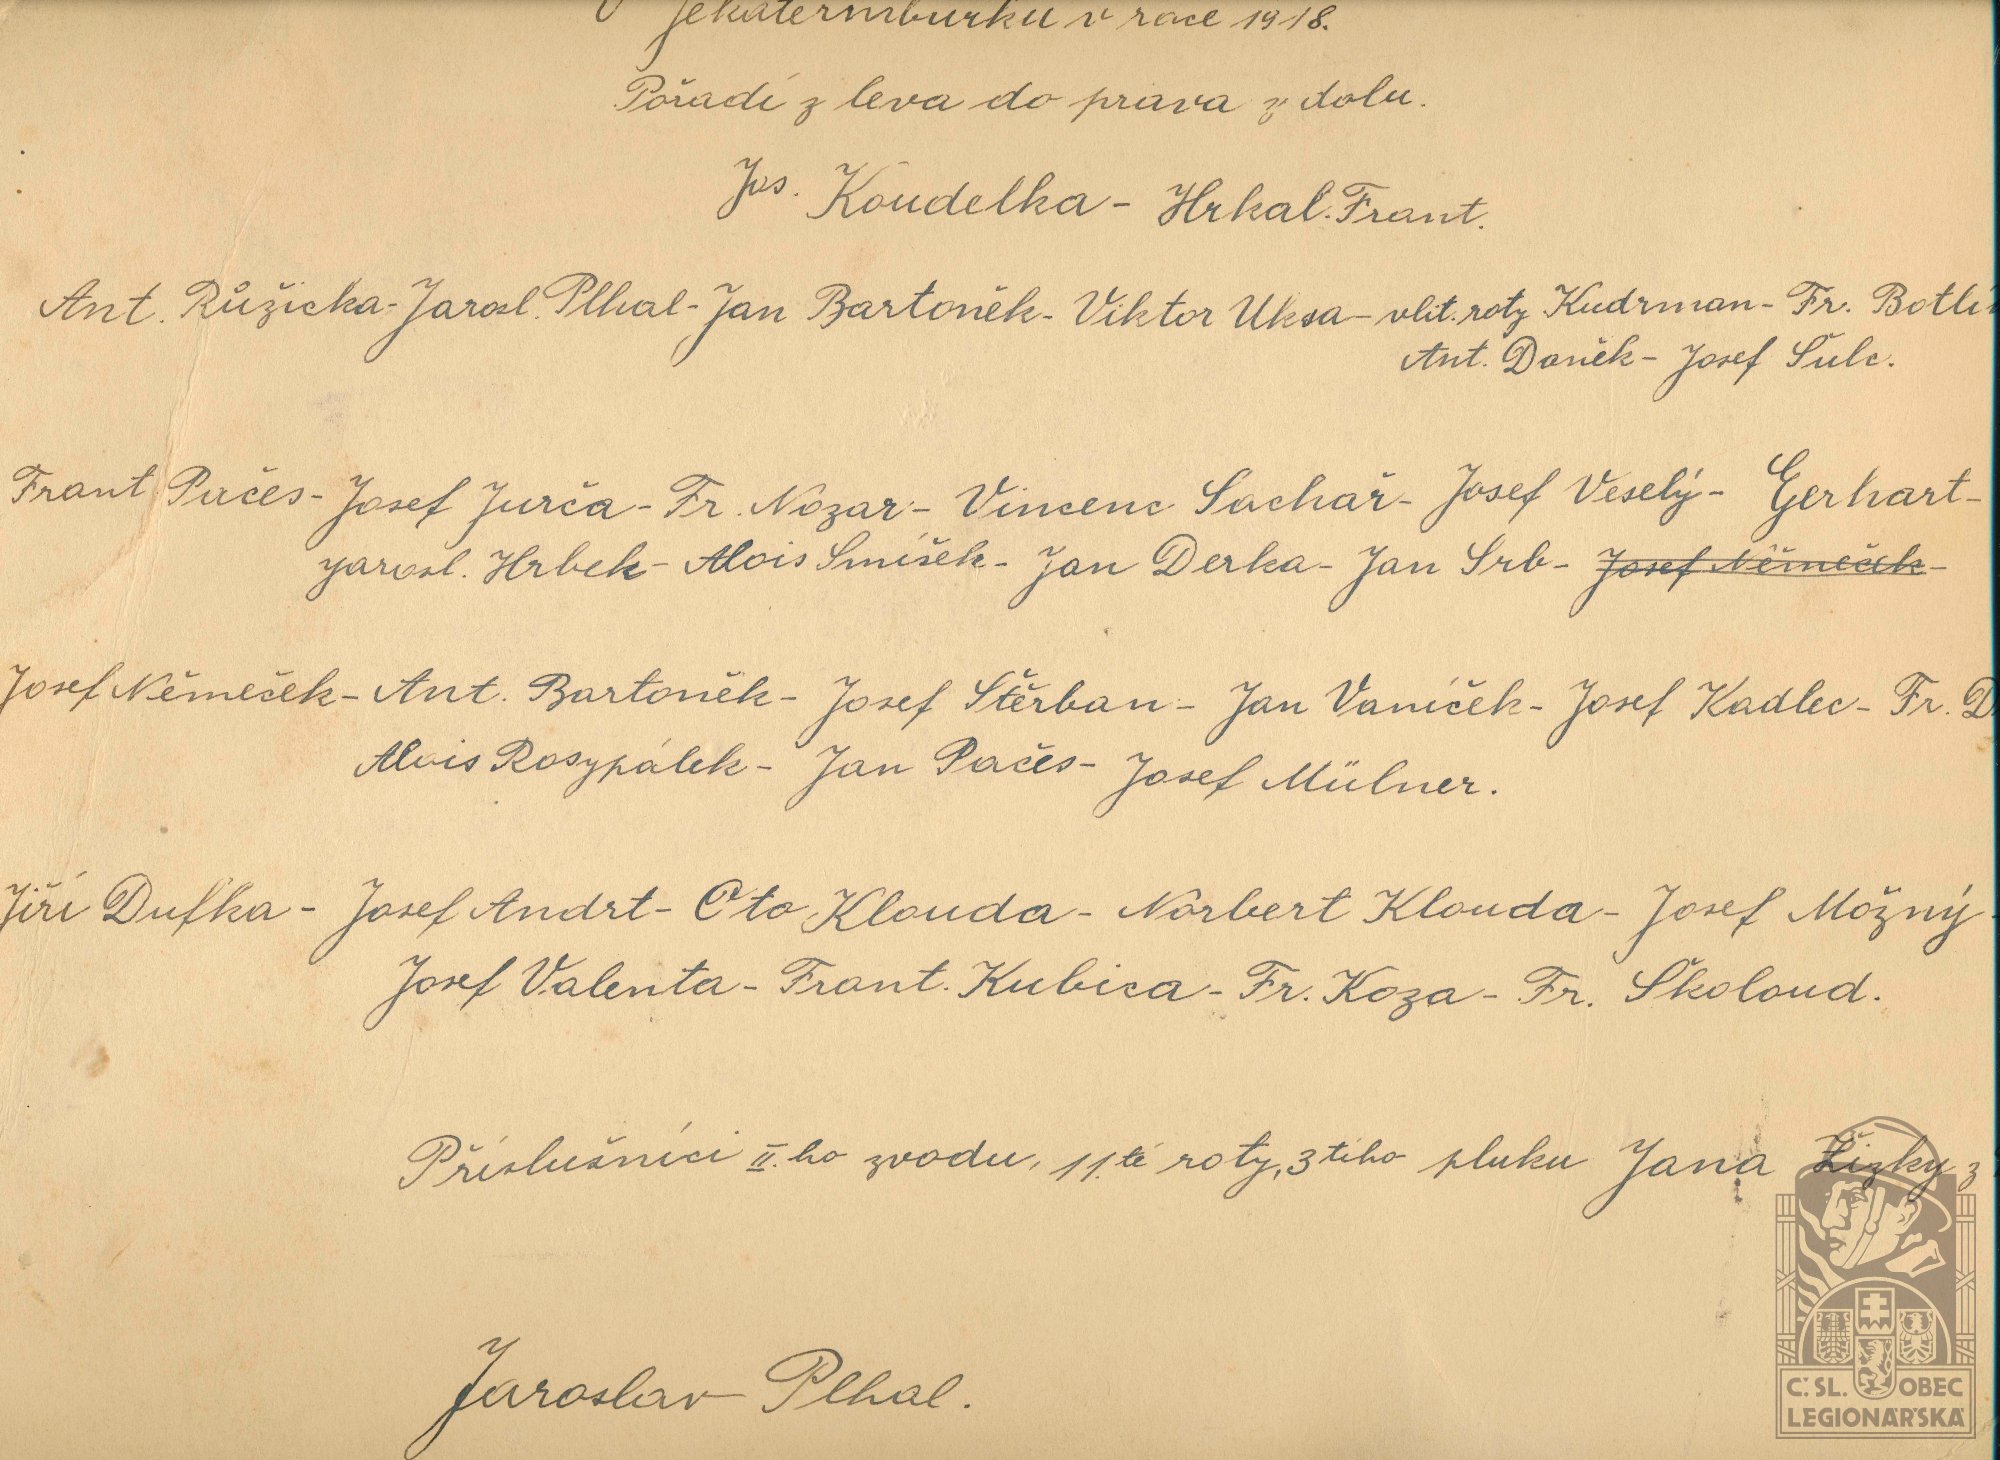 V Jekaterinburku v roce 1918.
Pořadí z leva do prava z dolu.
Jos. Koudelka - Hrkal. Frant.
Ant. Růžicka - Jarosl. Plhal - Jan Bartoněk - Viktor Uksa - vlit. roty Kudrman - Fr.
Ant. Daněk - Josef Šulc.
Frant. Pačes - Josef Jurča - Fr. Nozar - Vincenc Sachař - Josef Veselý - Gerhart -
Jarosl. Hrbek - Alois Smíšek - Jan Derka - Jan Srb - Josef Němeček -
Josef Němeček - Ant. Bartoněk - Josef Štěrban - Jan Vaníček - Josef Kadlec - Fr.
Alois Rosypálek - Jan Pačes - Josef Mülner.
Jiří Dufka - Josef Andrt - Oto Klouda - Norbert Klouda - Josef Možný -
Josef Valenta - Frant. Kubica - Fr. Koza - Fr. Školoud.
Příslušníci II.ho zvodu, 11.té roty, 3tího pluku Jana Žižky z
Jaroslav Plhal.
Č.SL. OBEC
LEGIONÁŘSKÁ